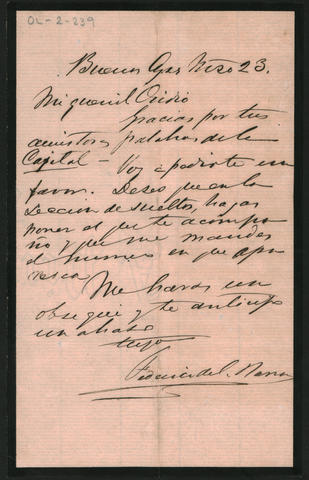 OL-2-239
Buenos Ayes Mzo 23.
Mi querido Ovidio
Gracias por tus
amistosas palabras de la
Capital — Voy a pedirte un
favor. Deseo que en la
Seccion de sueltos, hagas
poner al que te acompa
ño y que me mandes
el numero en que apa
rezca
Me haras un
obsequio y te anticipo
un abrazo
tuyo